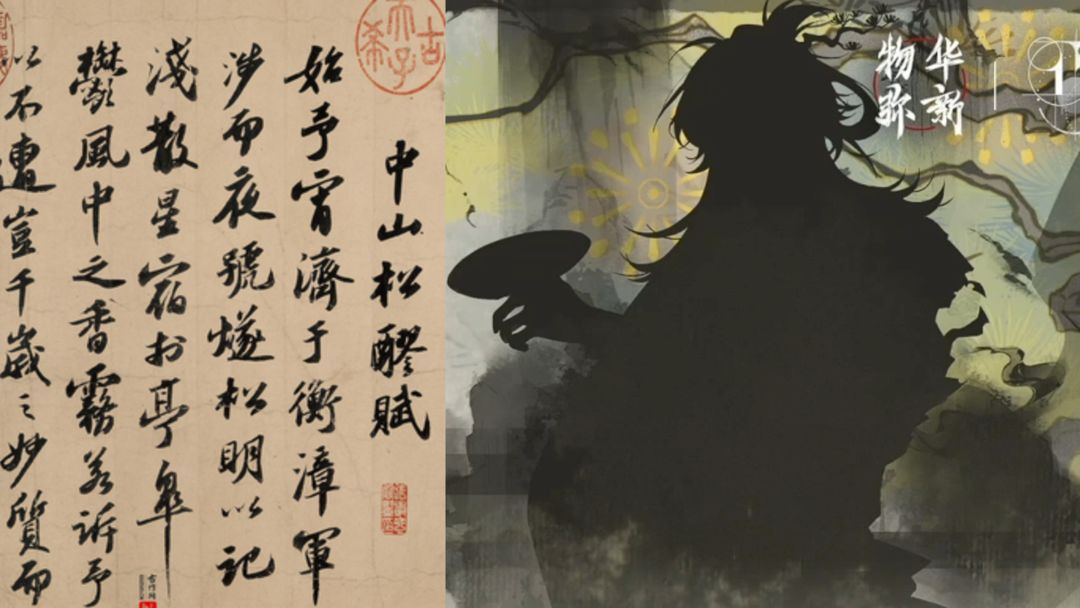 中山松醪賦
始予宵濟于衡漳軍
涉而夜號燧松明以記
淺散星宿扵亭皋
欝風中之香霧若訴予
以不遭豈千歲之妙質而
古希天子
物华
弥新